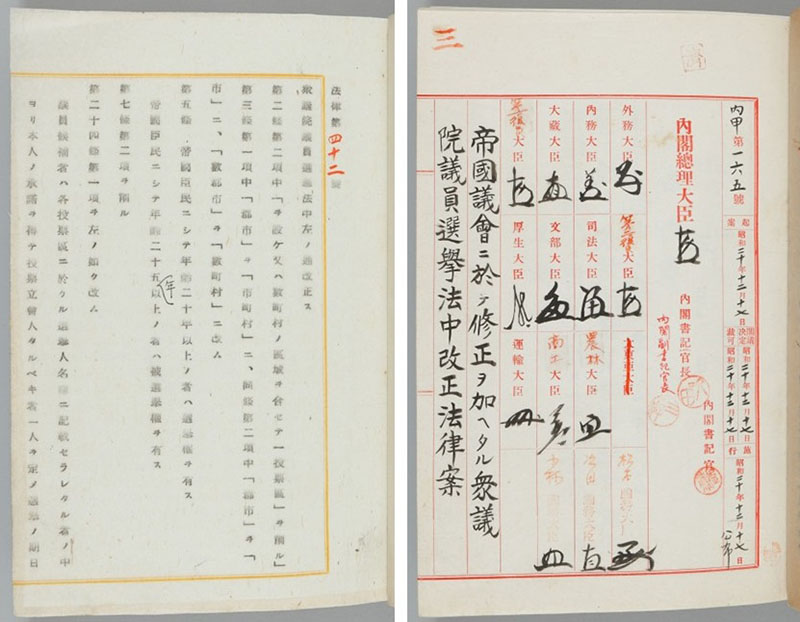 三
内甲第一六五號
起案 昭和二十年十二月十七日
閣議決定 昭和二十年十二月十七日
裁可 昭和二十年十二月十七日
施行 昭和二十年十二月十七日
公布
内閣總理大臣
内閣書記官長
内閣副書記官長
内閣書記官
外務大臣
内務大臣 司法大臣 農林大臣
大蔵大臣 文部大臣 商工大臣
大臣 厚生大臣 運輸大臣
帝國議會ニ於テ修正ヲ加ヘタル衆議
院議員選擧法中改正法律案
法律第四十二號
衆議院議員選擧法中左ノ通改正ス
第二條第二項中「ヲ設ケ又ハ數町村ノ區域ヲ合セテ一投票區」ヲ削ル
第三條第一項中「郡市」ヲ「市町村」ニ、同條第二項中「郡市」ヲ「
市」ニ、「數郡市」ヲ「數町村」ニ改ム
第五條 帝國臣民ニシテ年齡二十年以上ノ者ハ選擧權ヲ有ス
帝國臣民ニシテ年齡二十五年以上ノ者ハ被選擧權ヲ有ス
第七條第二項ヲ削ル
第二十四條第一項ヲ左ノ如ク改ム
議員候補者ハ各投票區ニ於ケル選擧人名簿ニ記載セラレタル者ノ中
ヨリ本人ノ承諾ヲ得テ投票立會人タルベキ者一人ヲ定メ選擧ノ期日